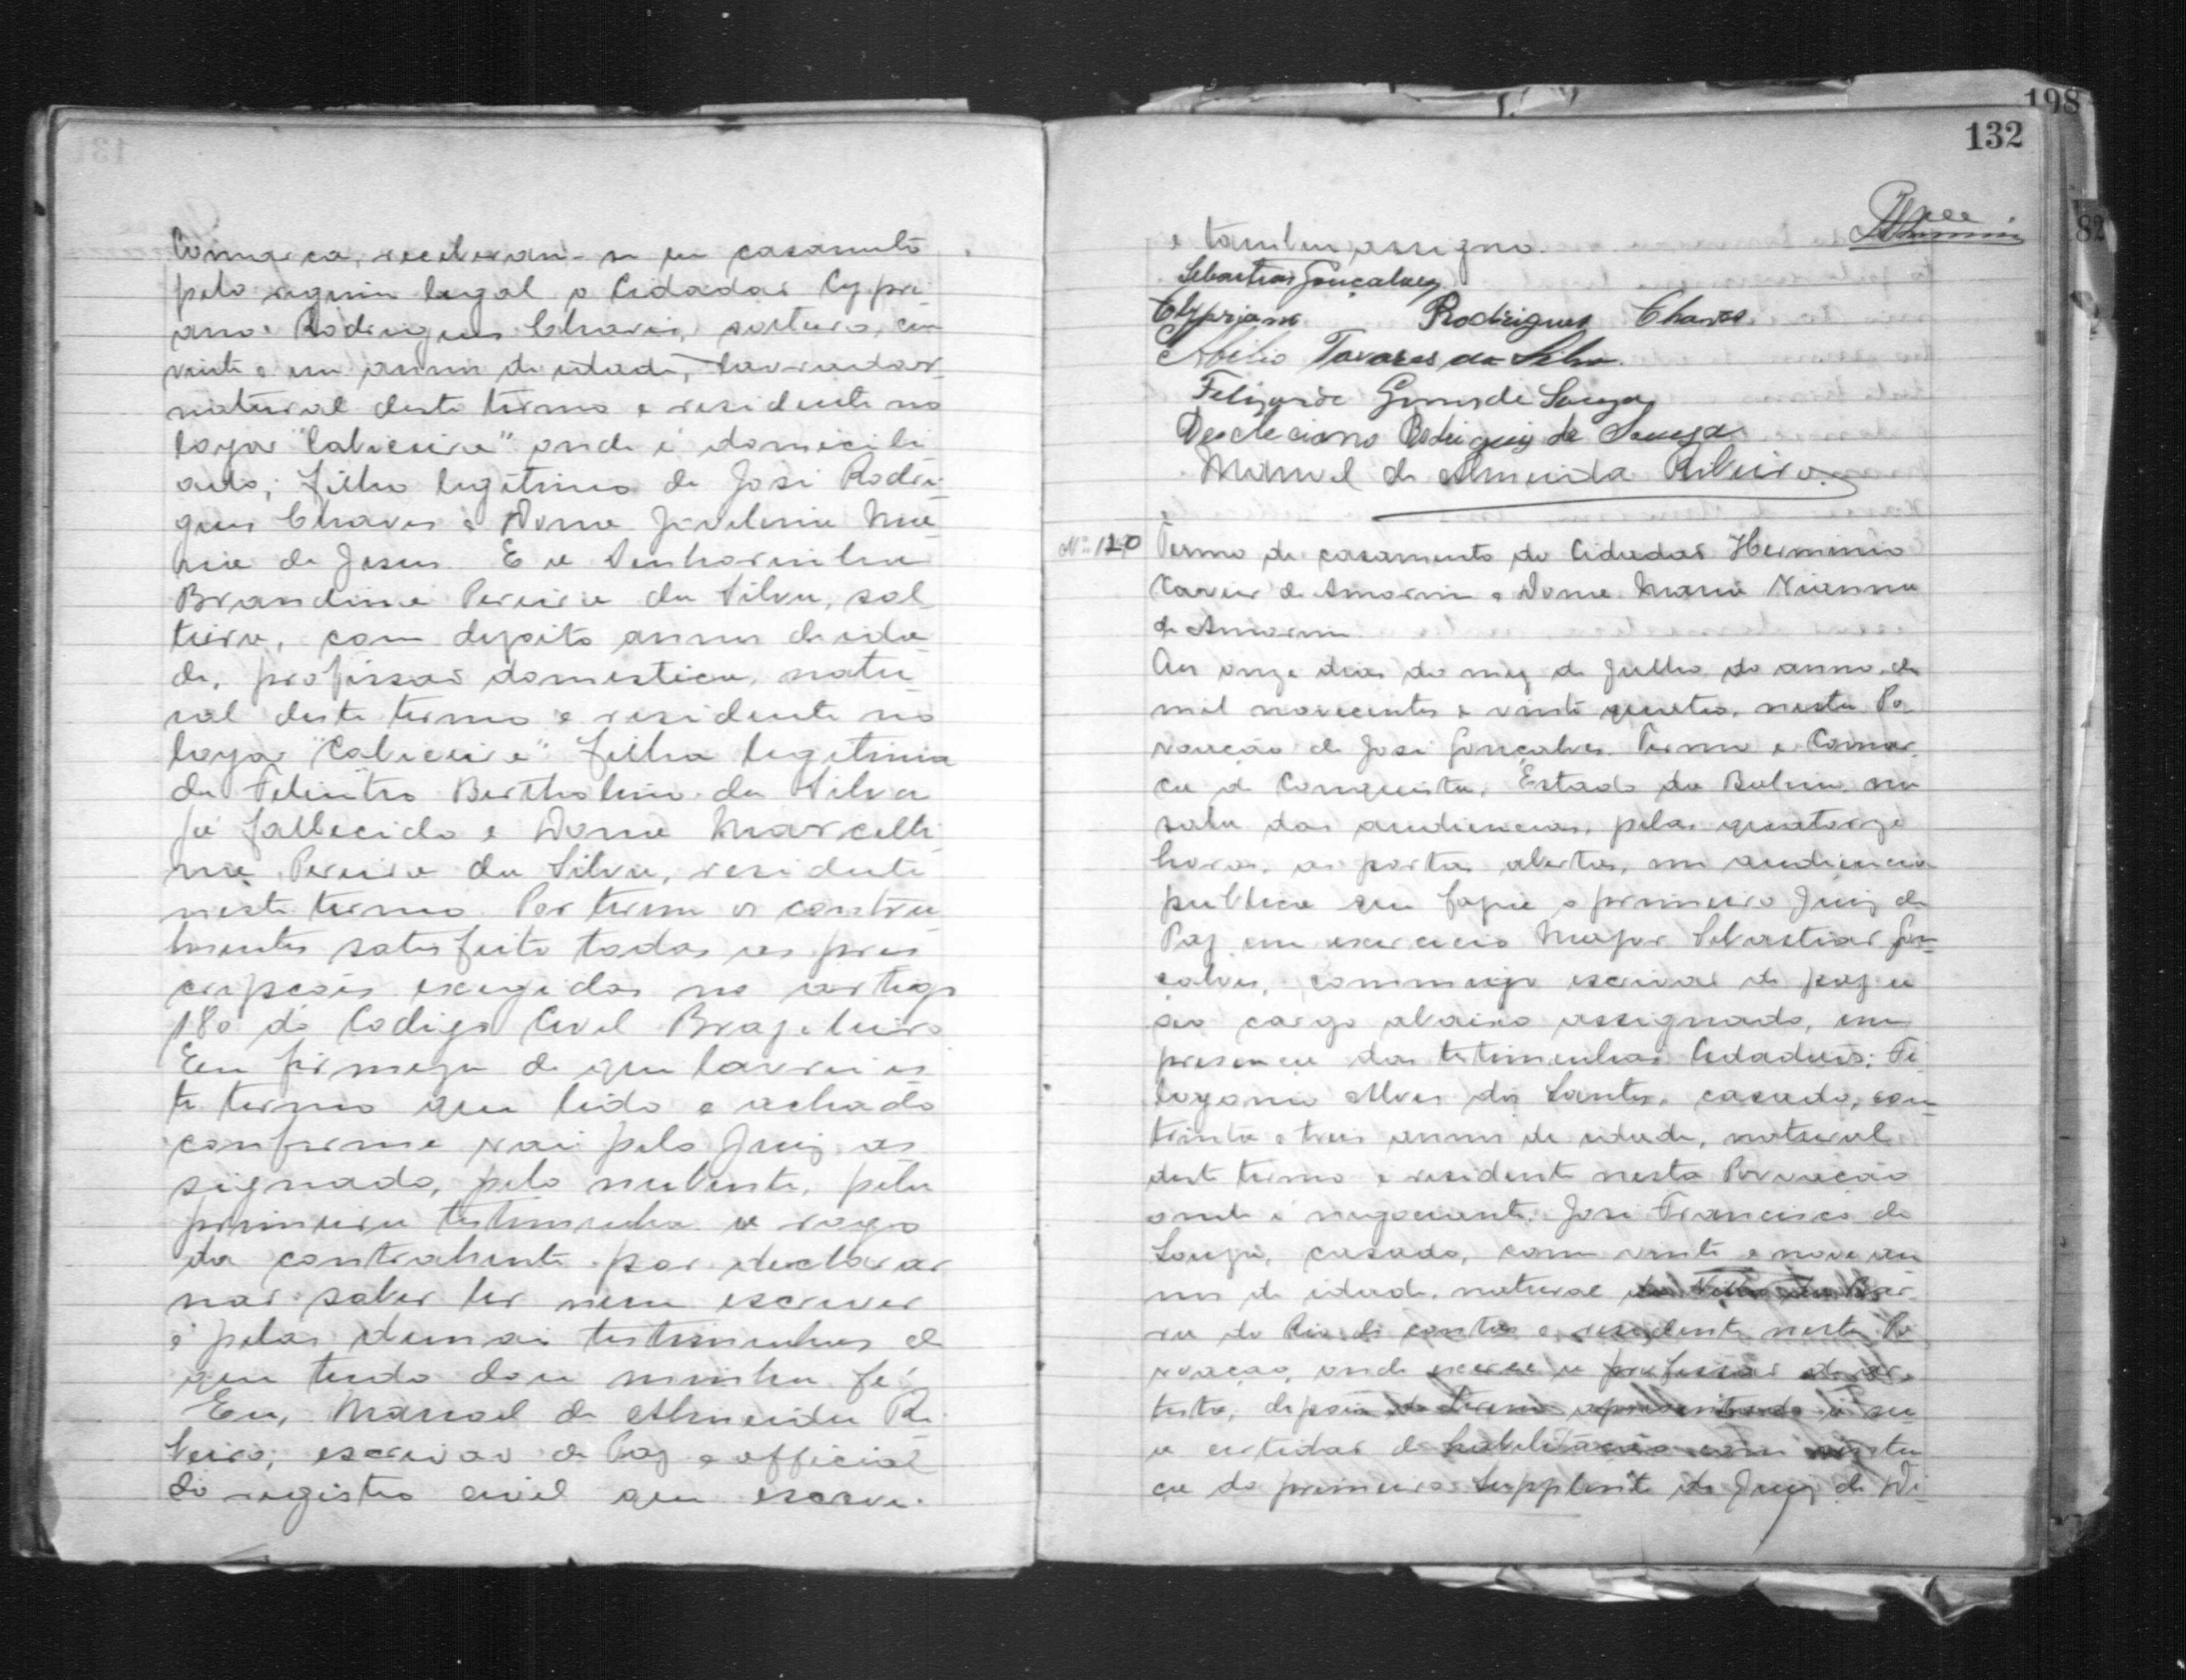 Comarca, receberam-se em casamento
pelo regimen legal o Cidadão Cypri-
ano Rodrigues Chaves, solteiro, com
vinte e um annos de idade, lavrador
natural deste termo e residente no
logar "Cabeceira" onde é domicili-
ado, filho legitimo de José Rodri-
gues Chaves e Dona Ma-
ria de Jesus. E a Senhorinha
Brandina Pereira da Silva, sol-
teira, com dezoito annos de ida-
de, profissão domestica, natu-
ral deste termo e residente no
logar "Cabeceira" filha legitima
de Felintro Bertholino da Silva
já fallecido e Dona Marcelli-
na Pereira da Silva, residente
neste termo. Por terem os contra-
hentes satisfeito todas as pres-
cripções exigidas no artigo
180 do Codigo Civil Brazileiro
Em firmeza do que lavrei es-
te termo que lido e achado
conforme vai pelo Juiz as-
signado, pelo nubente, pela
primeira testimunha a rogo
da contrahente por declarar
não saber ler nem escrever
e pelas demais testimunhas do
que tudo dou minha fé.
Eu, Manoel de Almeida Ri-
beiro, escrivão de Paz e official
do registro civil que escrevi.
198
132
82
e tambem assigno.
Sebastião Gonçalves
Cypriano Rodrigues Chaves
Abilio Tavares da Silva
Felizardo Gomes de Souza
Deocleciano Rodrigues de Souza
Manoel de Almeida Ribeiro.
Nº 120 Termo de casamento do Cidadão Herminio
Xavier de Amorim e Dona Maria Vianna
de Amorim.
Aos onze dias do mez de Julho do anno de
mil novecentos e vinte quatro, nesta Po-
voação de José Gonçalves. Termo e Comar-
ca de Conquista, Estado da Bahia, na
sala das audiencias, pelas quatorze
horas, as portas abertas, em audiencia
publica que fazia o primeiro Juiz de
Paz em exercicio Major Sebastião Gon-
çalves, commigo escrivão de paz e
ao cargo abaixo assignado, em
presença das testimunhas Cidadãos: Fi-
logonio Alves dos Santos, casado, com
trinta e tres annos de idade, natural
deste termo e residente nesta Povoação
onde é negociante. José Francisco de
Souza, casado, com vinte e nove an-
nos de idade, natural da Villa da Bar-
ra do Rio de Contas e residente nesta Po-
voação, onde exerce a profissão de ar-
tista, depois de terem apresentado a su-
a certidão de habilitação com
ça do primeiro Supplente do Juiz de Di-